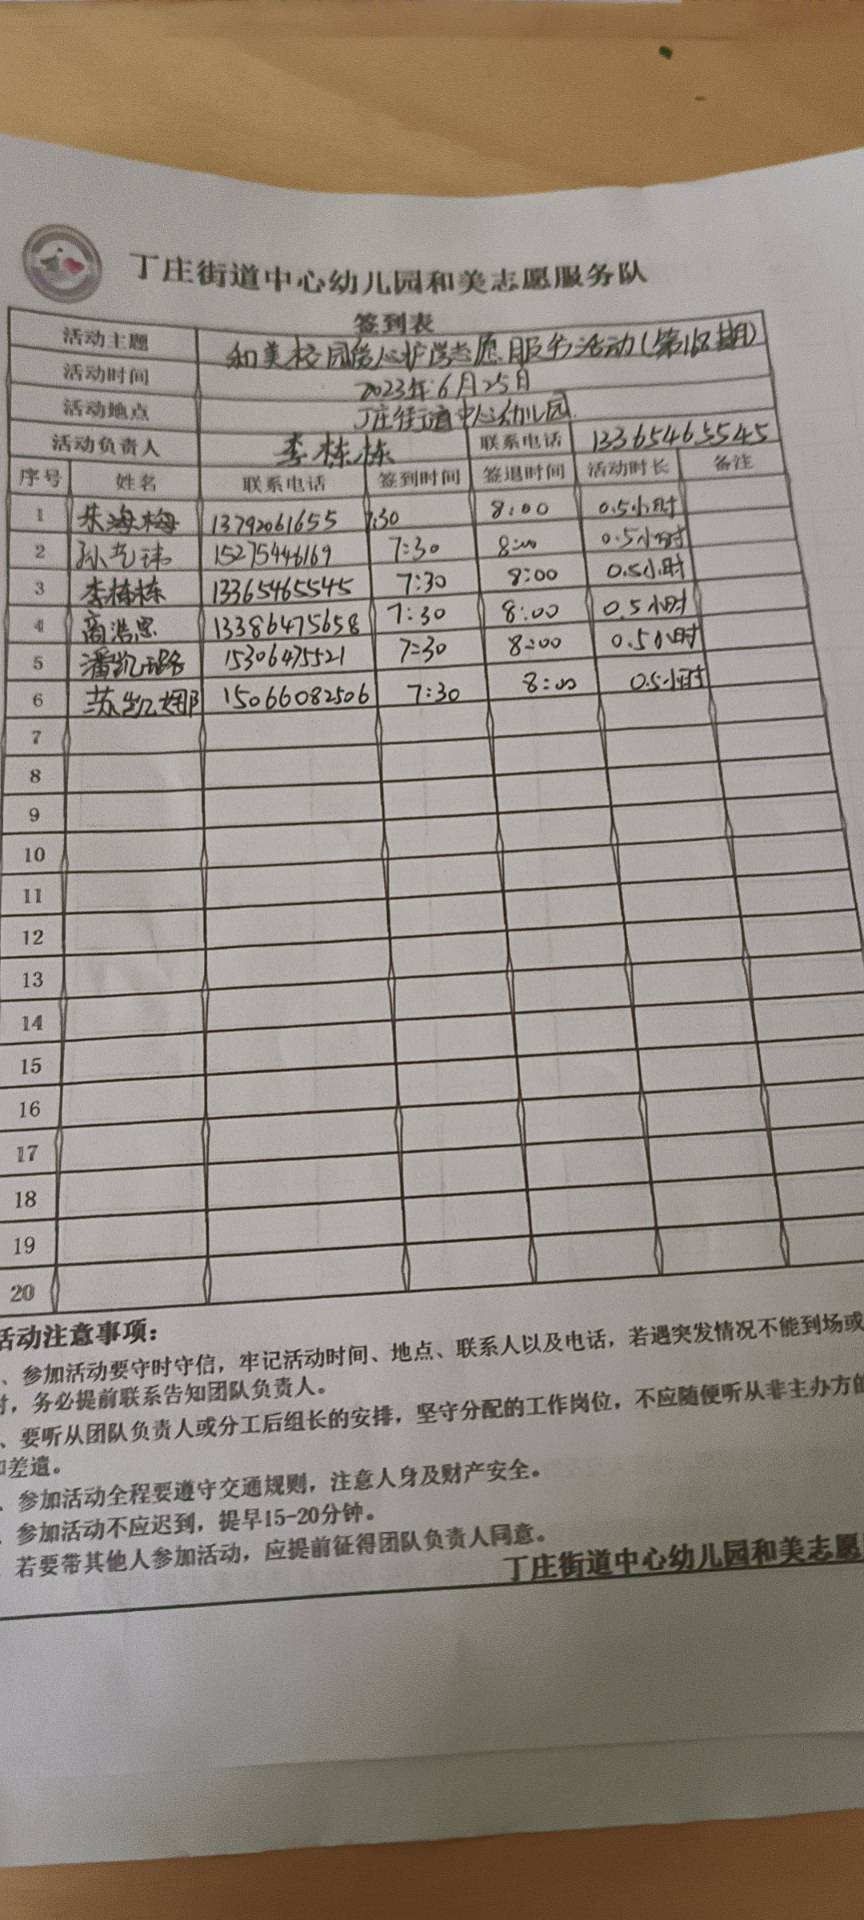 丁庄街道中心幼儿园和美志愿服务队
签到表
活动主题 和美校园爱心护学志愿服务活动(第168期)
活动时间 2023年6月25日
活动地点 丁庄街道中心幼儿园
活动负责人 李栋栋 联系电话 13365465545
序号 姓名 联系电话 签到时间 签退时间 活动时长 备注
1 朱海梅 13792061655 7:30 8:00 0.5小时
2 孙艺 15275446169 7:30 8:00 0.5小时
3 李栋栋 13365465545 7:30 8:00 0.5小时
4 商浩思 13386475658 7:30 8:00 0.5小时
5 潘凯璐 15306475521 7:30 8:00 0.5小时
6 苏凯娜 15066082506 7:30 8:00 0.5小时
7
8
9
10
11
12
13
14
15
16
17
18
19
20
活动注意事项:
、参加活动要守时守信，牢记活动时间、地点、联系人以及电话，若遇突发情况不能到场或
时，务必提前联系告知团队负责人。
、要听从团队负责人或分工后组长的安排，坚守分配的工作岗位，不应随便听从非主办方的
差遣。
、参加活动全程要遵守交通规则，注意人身及财产安全。
、参加活动不应迟到，提早15-20分钟。
若要带其他人参加活动，应提前征得团队负责人同意。
丁庄街道中心幼儿园和美志愿